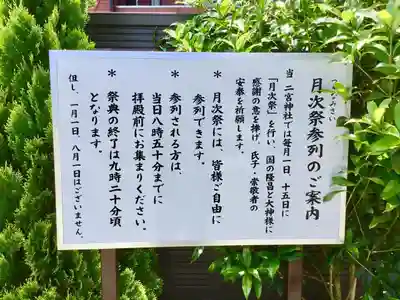 つきなみさい
月次祭参列のご案内
当 二宮神社では毎月一日、十五日に
「月次祭」を行い、国の隆昌と大神様に
感謝の意を捧げ、氏子・崇敬者の
安泰を祈願します。
* 月次祭には、皆様ご自由に
参列できます。
* 参列される方は、
当日八時五十分までに
拝殿前にお集まりください。
* 祭典の終了は九時二十分頃
となります。
但し、一月一日、八月一日はございません。